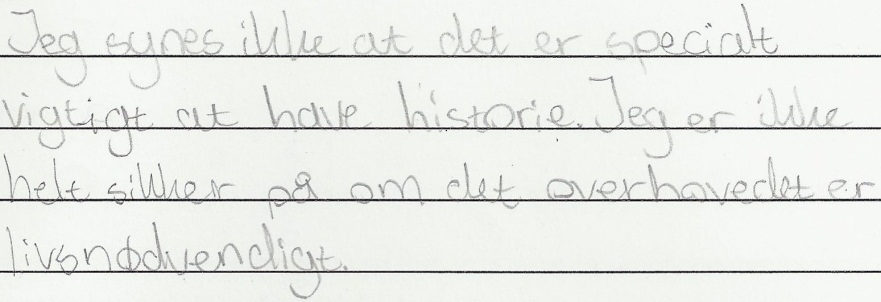 Jeg synes ikke at det er specialt
vigtigt at have historie. Jeg er ikke
helt sikker på om det overhovedet er
livsnødvendigt.